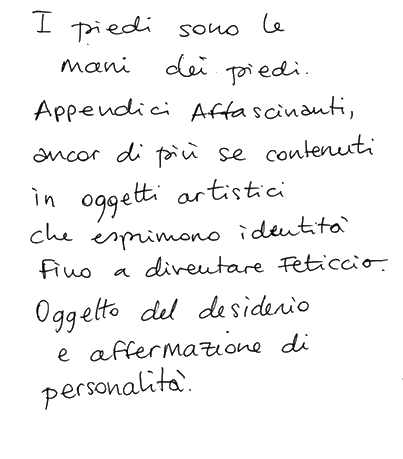 I piedi sono le
mani dei piedi.
Appendici Affascinanti,
ancor di più se contenuti
in oggetti artistici
che esprimono identità
fino a diventare Feticcio.
Oggetto del desiderio
e affermazione di
personalità.